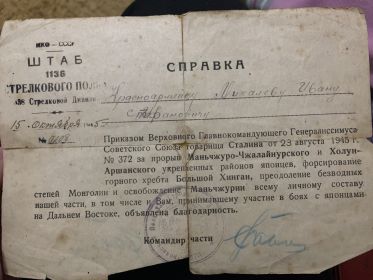 НКО — СССР
ШТАБ
1136
СТРЕЛКОВОГО ПОЛКА
338 Стрелковой Дивизии
15 октября 1945
№
СПРАВКА
Красноармейцу Михалеву Ивану
Приказом Верховного Главнокомандующего Генералиссимуса
Советского Союза товарища Сталина от 23 августа 1945 г.
№ 372 за прорыв Маньчжуро-Чжалайнурского и Холун-
Аршанского укрепленных районов японцев, форсирование
горного хребта Большой Хинган, преодоление безводных
степей Монголии и освобождение Маньчжурии всему личному составу
нашей части, в том числе и Вам, принимавшему участие в боях с японцами
на Дальнем Востоке, объявлена благодарность.
Командир части